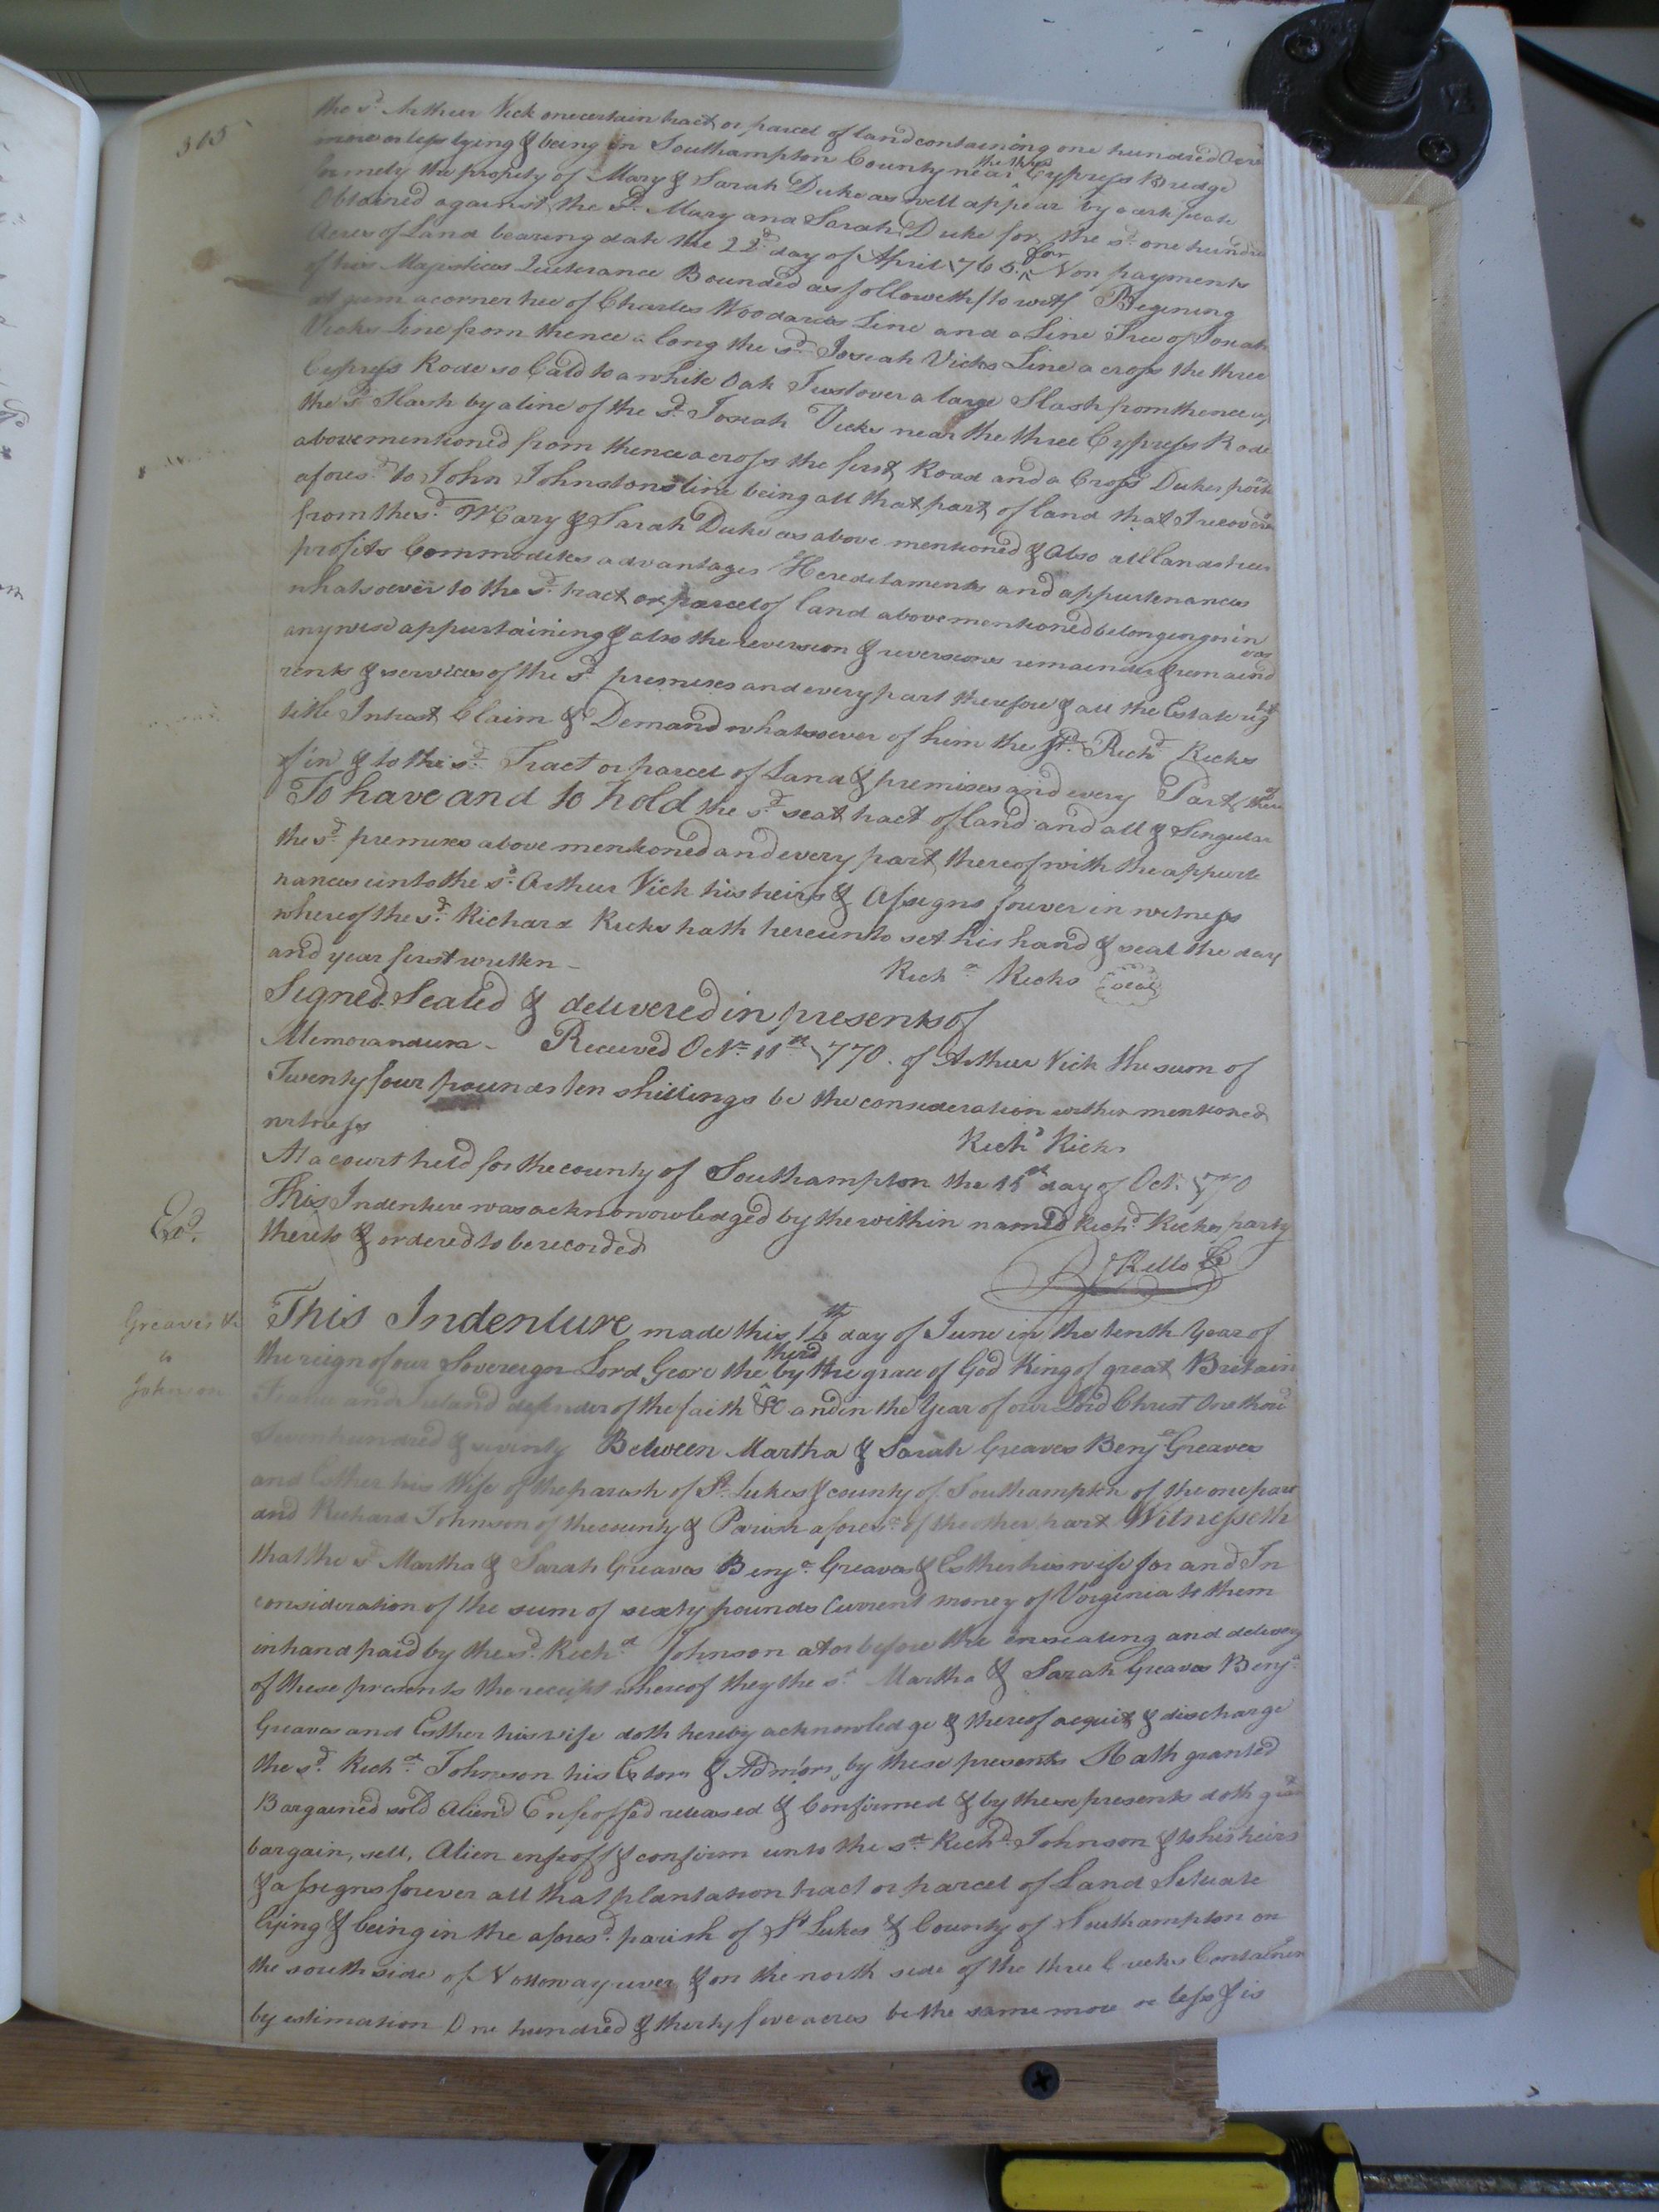 315
the sd. Arthur Vick one certain tract or parcel of land containing one hundred Acres
more or less lying & being in Southampton County near the three Cypress Bridge
formely the propety of Mary & Sarah Duke as will appear by a
Obtained against the sd. Mary and Sarah Duke for the sd. one hundred
Acres of Land bearing date the 22d. day of April 1765. for Non payments
of his Majesties Quiterance Bounded as followeth to witt Begining
at gum a corner tree of Charles Woodards Line and a Line Tree of Josiah
Vicks Line from thence along the sd. Joseah Vicks Line a cross the three
Cypress Rode so Cald to a white Oak Just over a large Slash from thence up
the sd. Slash by a line of the sd. Joseah Vicks near the three Cypress Rode
abovementioned from thence a cross the first Road and a Cross Dukes
afores'd to John Johnstons line being all that part of land that I recovered
from the sd. Mary & Sarah Duke as above mentioned & Also all lands trees
profits Commodites advantages Hereditaments and appurtenances
whatsoever to the sd. tract or parcel of land above mentioned belonging or in
any wise appurtaining & also the reversion & reversions remainder & remaind
ers
rents & services of the sd. premises and every part therefore & all the Estate right
title Intrest Claim & Demand whatsoever of him the sd. Richd. Ricks
of in & to the sd. Tract or parcel of Land & premises and every Part there
of
To have and to hold the sd. seat tract of land and all & Singular
the sd. premises above mentioned and every part thereof with the appurte
nances unto the sd. Arthur Vick his heirs & Assigns forever in witness
whereof the sd. Richard Ricks hath hereunto set his hand & seal the day
and year first written - Richd. Ricks seal
Signed Sealed & delivered in presents of
Memorandum - Received Octr. 11th 1770. of Arthur Vick the sum of
Twenty four pounds ten shillings be the consideration within mentioned
witness Richd Ricks
At a court held for the county of Southampton the 15th day of Oct. 1770
This Indenture was acknonowledged by the within named Richd. Ricks party
thereto & ordered to be recorded
Exd.
R Kello C
Greaves &c
to
Johnson
This Indenture made this 12th day of June in the tenth Year of
the reign of our Sovereign Lord Geore the third by the grace of God King of great Britain
France and Ireland defender of the faith &c and in the Year of our Lord Christ One thou
Seven hundred & seventy Between Martha & Sarah Greaves Benja Greaves
and Esther his Wife of the parish of St. Lukes & county of Southampton of the one part
and Richard Johnson of the county & Parish aforesd. of the other part Witnesseth
that the sd Martha & Sarah Greaves Benja. Greaves & Esther his wife for and In
consideration of the sum of sixty pounds Current money of Virginia to them
in hand paid by the sd. Richd Johnson at or before the ensealing and delivery
of these presents the receipt whereof they the sd Martha & Sarah Greaves Benja.
Greaves and Esther his wife doth hereby acknowledge & thereof acquit & discharge
the sd. Richd. Johnson his Extors & Admors, by these presents Hath granted
Bargained sold Aliend Enfeoffed released & Confirmed & by these presents doth grant
bargain, sell, Alien enfeoff & confirm unto the sd. Richd. Johnson & to his heirs
& assigns forever all that plantation tract or parcel of Land Setuate
lying & being in the aforesd. parish of St Lukes & County of Southampton on
the south side of Nottoway river & on the north side of the three Creeks Containen
by estimation One hundred & therty five acres be the same more or less & is